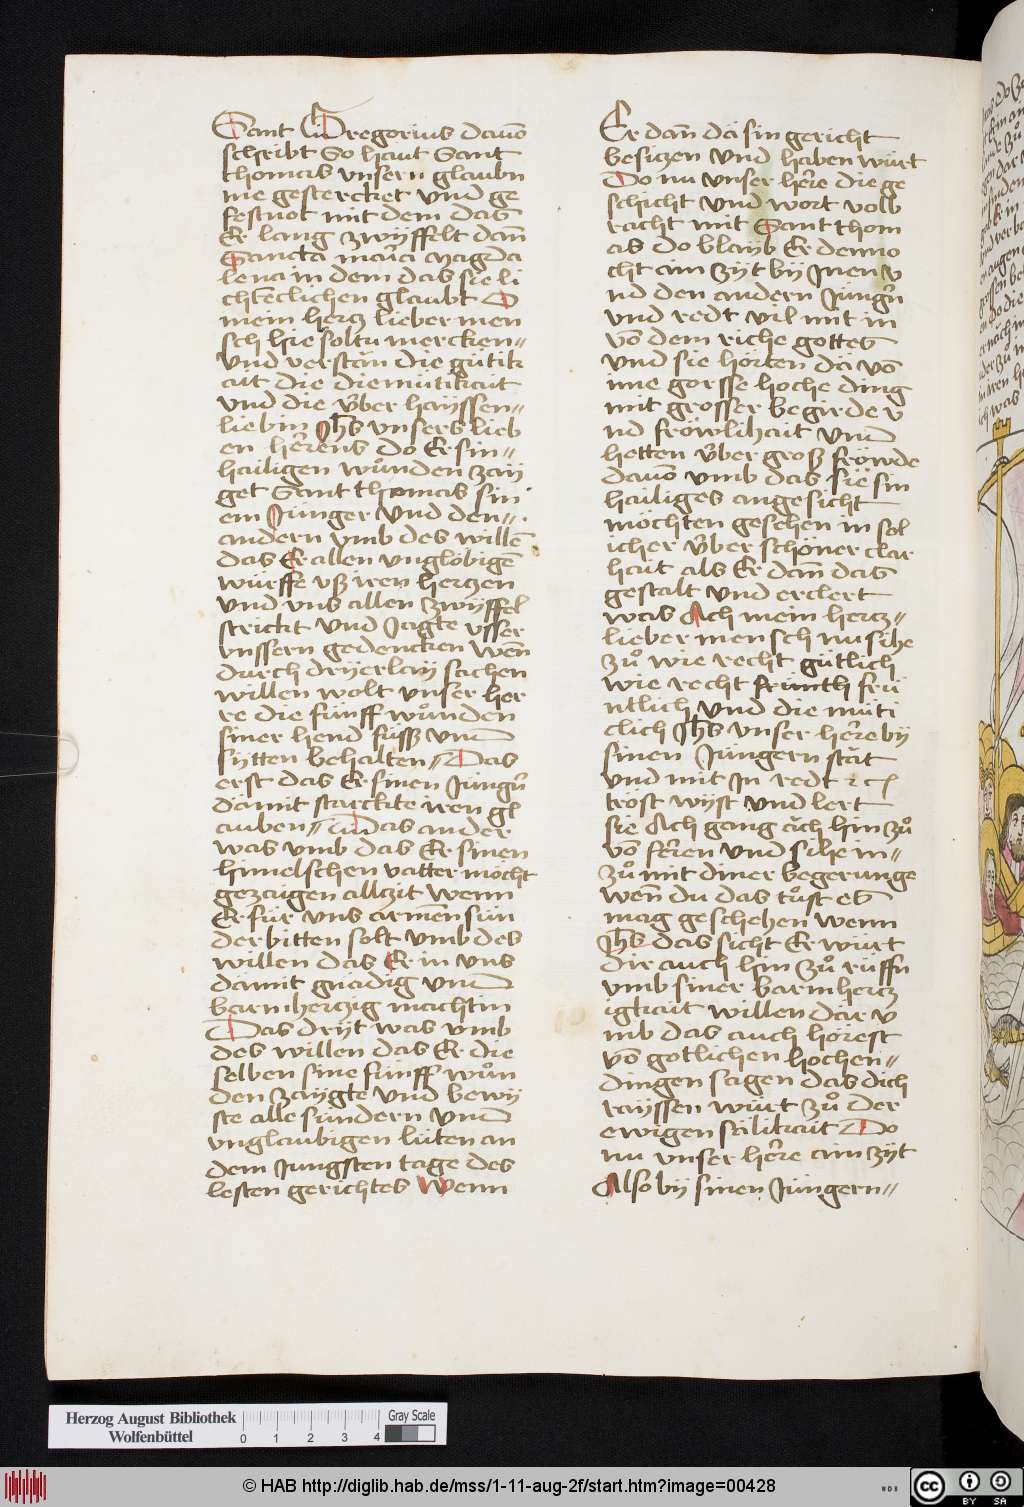 Sant Gregorius dauō
schribt So haut Sant
thomas vnsern glaubn
me gestercket vnd ge
festnot mit dem das
Er lang zwÿffelt dan̄
Sancta maria magda
lena in dem das sie li
chteclichen glaubt O
mein hertz lieber men
sch hie soltu mercken
Vnd verstan die gütik
ait die diemütikait
vnd die vber hayssen
liebin Jhs vnsers lieb
en herrens do Er sin
hailigen wůnden zaÿ
get Sant thomas sin
em Jünger Vnd den
andern vmb des willē
das Er allen vnglöbigē
würffe vß iren hertzen
vnd vns allen zwÿffel
strickt vnd Jagte vsser
vnssern gedencken wen̄
durch drÿerlay sachen
willen wolt vnser her
re die fünff wůnden
siner hend füß vnd
sÿtten behalten Das
erst das Er sinen Jüngrn
damit starckte iren gl
auben Das ander
was vmb das Er sinen
himelschen vatter möcht
gezaigen allzit wenn
Er für vns armen sün
der bitten solt vmb des
willen das Er in vns
damit gnädig vnd
barmhertzig machtin
Das drÿt was vmb
des willen das Er die
selben sine fünff wůn
den zaÿgte vnd bewÿ
ste alle sündern vnd
vnglaubigen lüten an
dem Jungsten tage des
lesten gerichtes Wenn
Er dan̄ dä sin gericht
besitzen vnd haben würt
Do nu vnser here die ge
schicht vnd wort volb
racht mit Sant thom
as do blayb Er denno
cht ain zÿt bÿ Jnen v
nd den andern Jüngrn
vnd redt vil mit in
vō dem riche gottes
vnd sie horten da vō
ime gorsse hoche ding
mit grosser begirde v
nd fröwlihait vnd
hetten vber groß fröwde
dauō vmb das sie sin
hailiges angesicht
möchten gesehen in sol
icher vber schöner clar
hait als Er dan̄ das
gestalt vnd erclert
was Ach mein hertz
lieber mensch nu sihe
zů wie recht gütlich
wie recht früntli frü
ntlich vnd die müti
clich Jhs vnser here bÿ
sinen Jüngern stät
vnd mit Jn redt
tröst wÿst vnd lert
sie Ach gang äch hin zů
vō ferren vnd sihe in
zů mit diner begerunge
wen̄ du das tůst es
mag geschehen wenn
Jhs das sicht Er würt
dir auch hin zů rüffn
vmb siner barmhertz
igkait willen dar v
mb das auch hörest
vō gotlichen hochen
dingen sagen das dich
rayssen würt zů der
ewigen sälikait Do
nu vnser here ain zÿt
Also bÿ sinen Jüngern
Herzog August Bibliothek
Wolfenbüttel
0 1 2 3 4
Gray Scale
© HAB http://diglib.hab.de/mss/1-11-aug-2f/start.htm?image=00428
CC BY SA